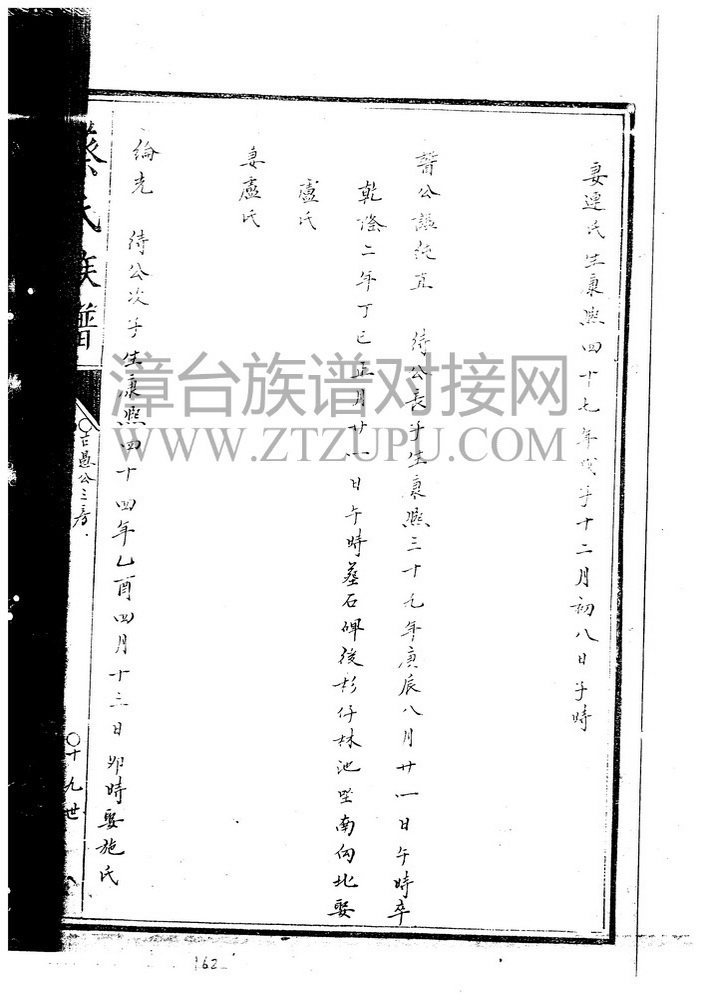 妻連氏 生康熙四十七年戊子十二月初八日子時
公諱純直 待公長子生康熙三十九年庚辰八月廿一日午時卒
乾隆二年丁巳正月廿一日午時墓石碑後杉仔林池坐南向北娶
盧氏
妻盧氏
綸光 待公次子生康熙四十四年乙酉四月十三日卯時娶施氏
氏族譜
公三房
十九世
漳台族谱对接网
WWW.ZTZUPU.COM
162